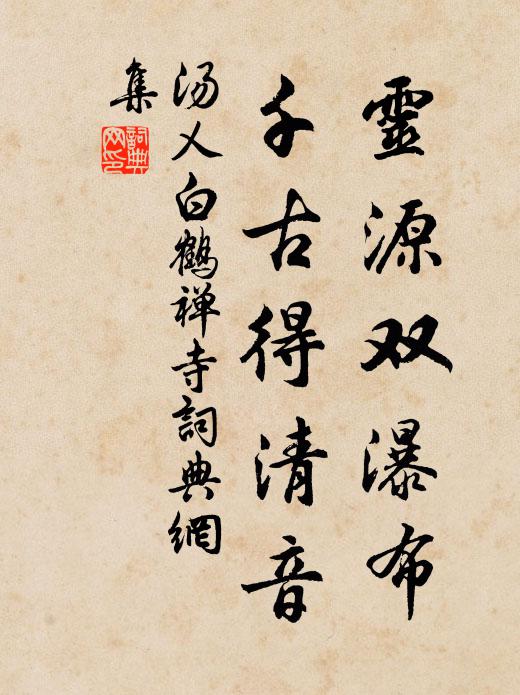 靈源双瀑布
千古得清音
汤乂白鶴禅寺詞典網
集
詞典网印